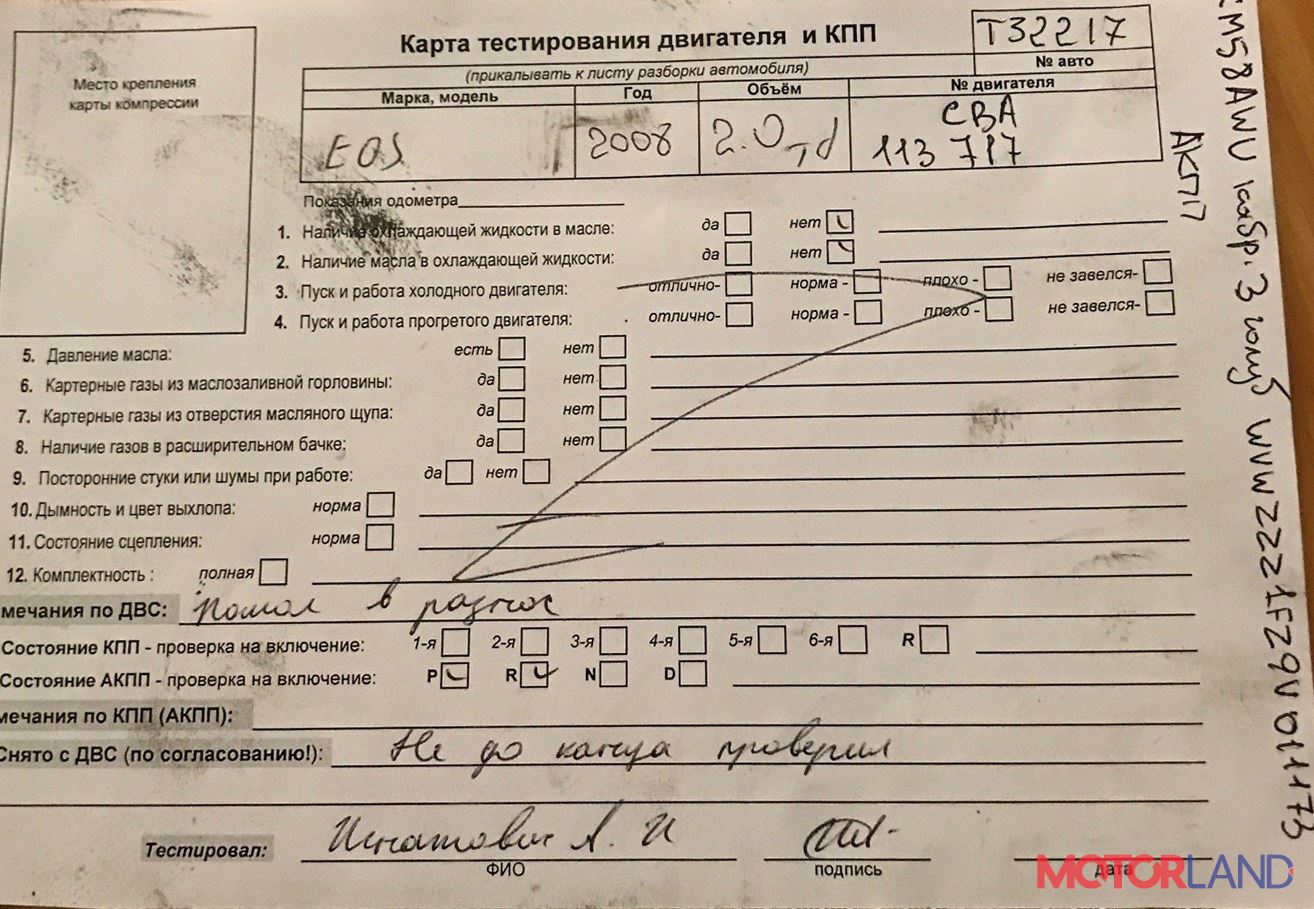 Место крепления
карты компрессии
Карта тестирования двигателя и КПП
Т32217
№ авто
(прикалывать к листу разборки автомобиля)
Марка, модель Год Объём № двигателя
EOS 2008 2.0 td CBA
113 717
АКПП
Показания одометра
1. Наличие охлаждающей жидкости в масле: да нет
2. Наличие масла в охлаждающей жидкости: да нет
3. Пуск и работа холодного двигателя: отлично- норма - плохо - не завелся-
4. Пуск и работа прогретого двигателя: отлично- норма - плохо - не завелся-
5. Давление масла: есть нет
6. Картерные газы из маслозаливной горловины: да нет
7. Картерные газы из отверстия масляного щупа: да нет
8. Наличие газов в расширительном бачке: да нет
9. Посторонние стуки или шумы при работе: да нет
10. Дымность и цвет выхлопа: норма
11. Состояние сцепления: норма
12. Комплектность : полная
мечания по ДВС: Пошол в разнос
Состояние КПП - проверка на включение: 1-я 2-я 3-я 4-я 5-я 6-я R
Состояние АКПП - проверка на включение: P R N D
мечания по КПП (АКПП):
Снято с ДВС (по согласованию!): Не до конца проверил
Тестировал: Игнатович А. И
ФИО подпись дата
MOTORLAND